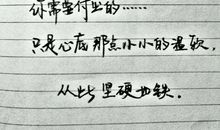 你需要付出的……
只是心底那点小小的温软,
从此坚硬如铁.